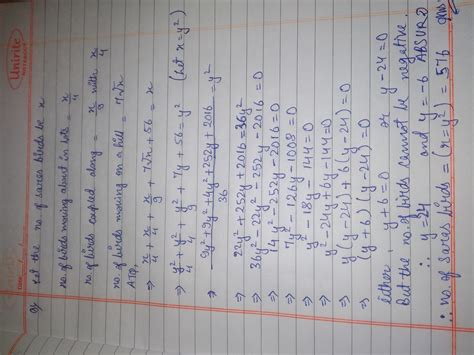 Unirite
Q) Let the no. of sares birds be x
no. of birds moving about in lots = x/4
no. of birds coupled along = x/9 with x/4
no. of birds moving on a hill = 7√x
ATQ,
⇒ x/4 + x/4 + x/9 + 7√x + 56 = x
⇒ y²/4 + y²/4 + y²/9 + 7y + 56 = y² (Let x = y²)
⇒ 9y² + 9y² + 4y² + 252y + 2016/36 = y²
⇒ 22y² + 252y + 2016 = 36y²
⇒ 36y² - 22y² - 252y - 2016 = 0
⇒ 14y² - 252y - 2016 = 0
⇒ 7y² - 126y - 1008 = 0
⇒ y² - 18y - 144 = 0
⇒ y² - 24y + 6y - 144 = 0
⇒ y(y-24) + 6(y-24) = 0
⇒ (y+6)(y-24) = 0
either, y+6 = 0 or y-24 = 0
But the no. of birds cannot be negative.
∴ y = 24 and y = -6 ABSURD
∴ no. of sares birds = (x = y²) = 576 ans